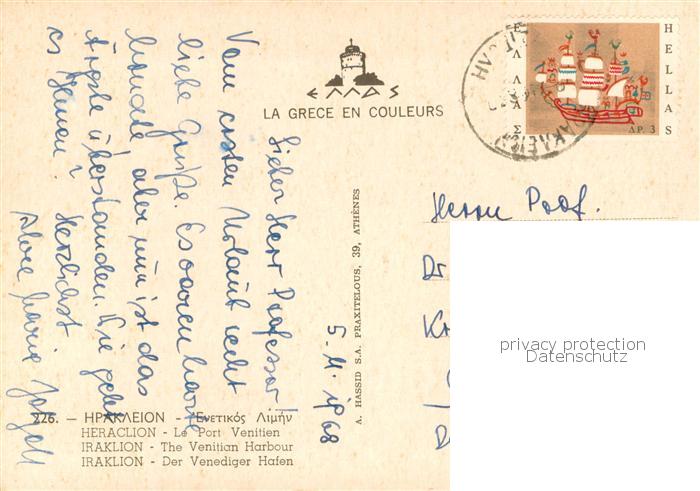 ΕΛΛΑΣ
LA GRECE EN COULEURS
ΕΛΛΑΣ
HELLAS
ΔΡ. 3
5. 11. 1968
Lieber Herr Professor!
Vom ersten Urlaub recht
liebe Grüße. Es waren harte
Monate, aber nun ist das
Ärgste überstanden. Wie geht
es Ihnen? Herzlichst
Ihre
A. HASSID S.A. PRAXITELOUS, 39, ATHÈNES
Herrn Prof.
Dr
privacy protection
Datenschutz
226. — ΗΡΑΚΛΕΙΟΝ - Ἐνετικός Λιμήν
HERACLION - Le Port Venitien
IRAKLION - The Venitian Harbour
IRAKLION - Der Venediger Hafen